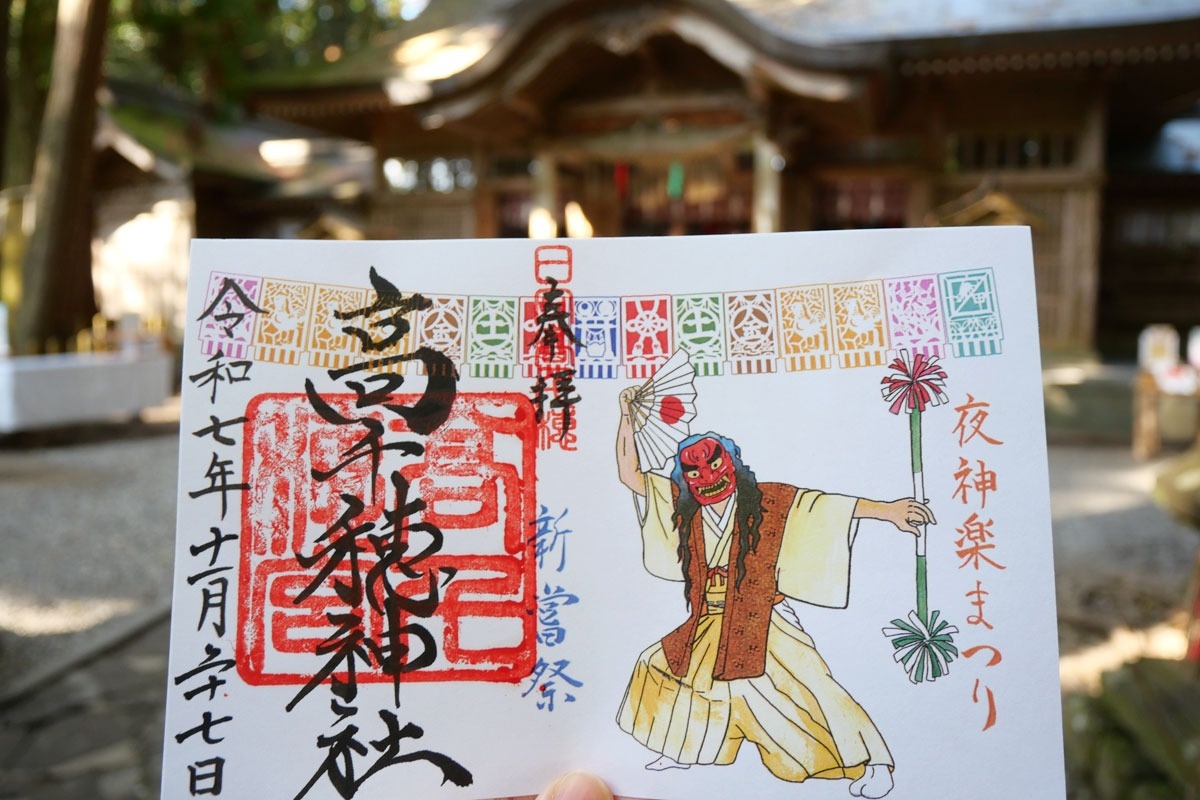 夜神楽まつり
金 土 土 金
奉拝
新嘗祭
高千穂神社
令和七年十一月二十七日